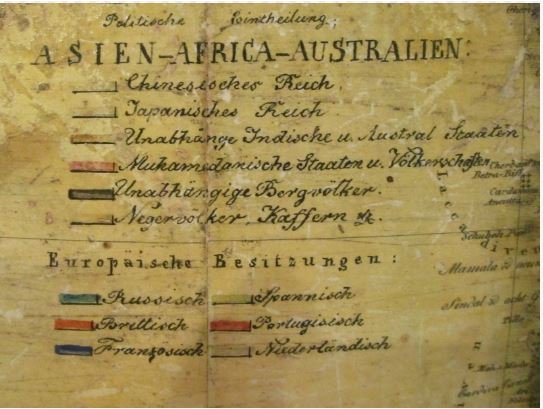 Politische Eintheilung,
ASIEN-AFRICA-AUSTRALIEN:
Chinesisches Reich,
Japanisches Reich
Unabhänge Indische u. Austral Staaten
Muhamedanische Staaten u. Völkerschaften
Unabhängige Bergvölker.
Negervölker, Kaffern
Europäische Besitzungen:
Russisch Spannisch
Brittisch Portugisisch
Französisch Niederländisch